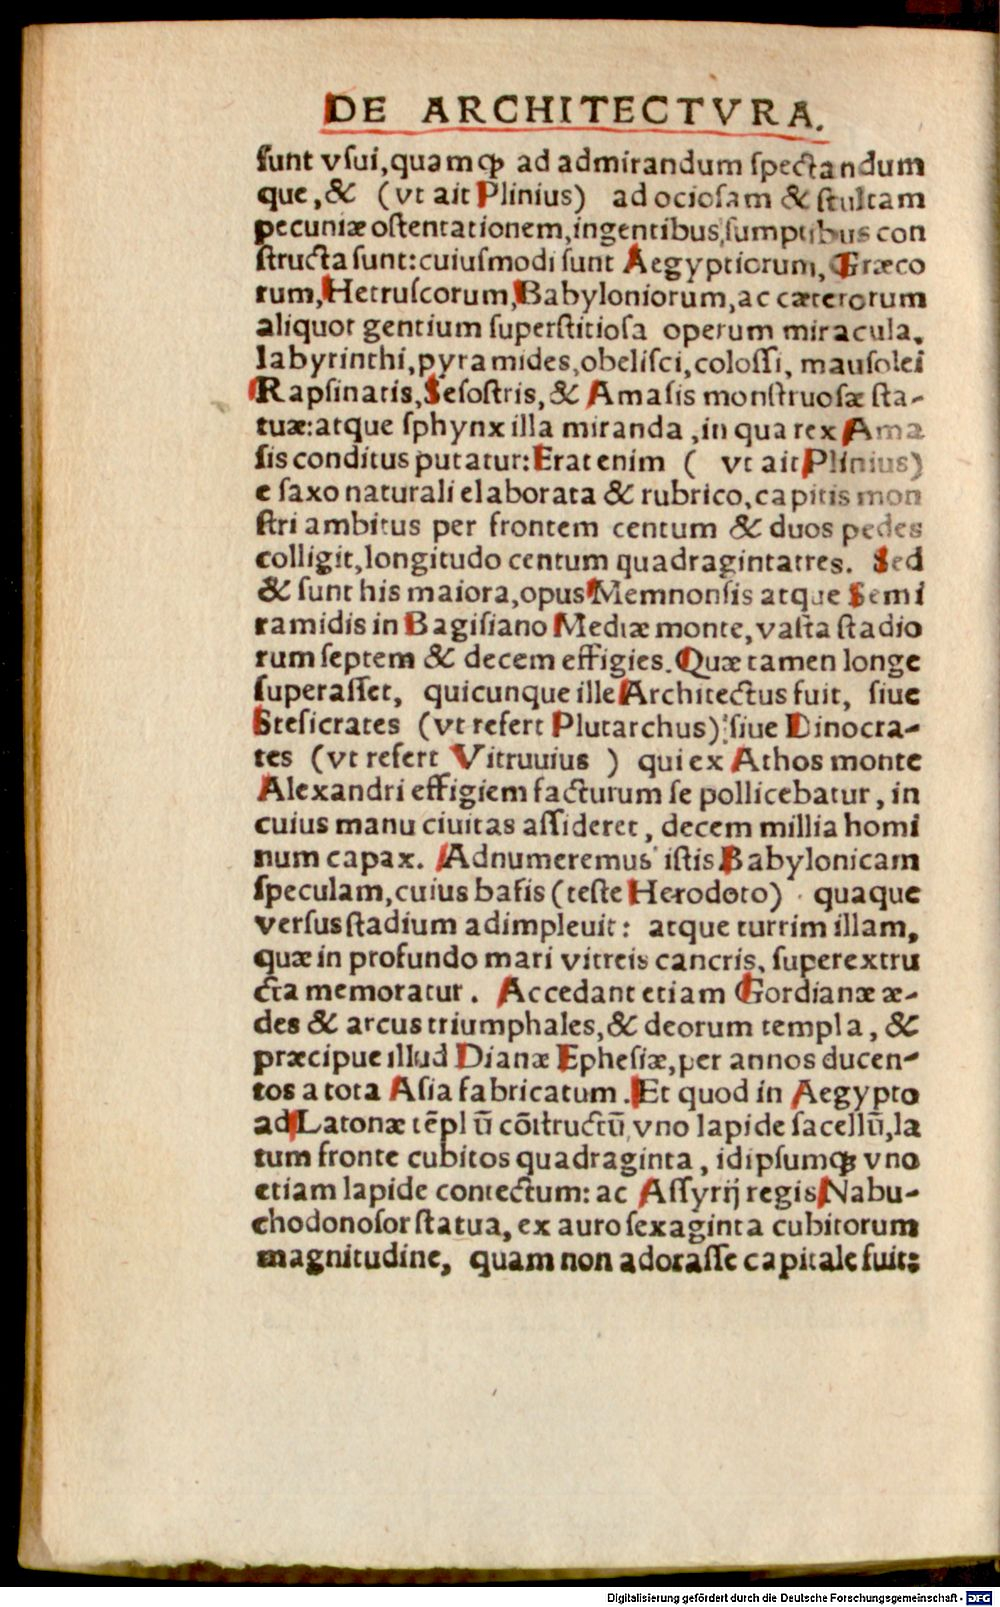 DE ARCHITECTVRA.
ſunt vſui, quamꝙ ad admirandum ſpectandum
que, & (vt ait Plinius) ad ocioſam & ſtultam
pecuniæ oſtentationem, ingentibus ſumptibus con
ſtructa ſunt: cuiuſmodi ſunt Aegyptiorum, Græco
rum, Hetruſcorum, Babyloniorum, ac cæterorum
aliquot gentium ſuperſtitioſa operum miracula.
labyrinthi, pyramides, obeliſci, coloſſi, mauſolei
Rapſinatis, Seſoſtris, & Amaſis monſtruoſæ ſta-
tuæ: atque ſphynx illa miranda, in qua rex Ama
ſis conditus putatur: Erat enim ( vt ait Plinius)
e ſaxo naturali elaborata & rubrico, capitis mon
ſtri ambitus per frontem centum & duos pedes
colligit, longitudo centum quadragintatres. Sed
& ſunt his maiora, opus Memnonſis atque Semi
ramidis in Bagiſiano Mediæ monte, vaſta ſtadio
rum ſeptem & decem effigies. Quæ tamen longe
ſuperaſſet, quicunque ille Architectus fuit, ſiue
Steſicrates (vt refert Plutarchus) ſiue Dinocra-
tes (vt refert Vitruuius ) qui ex Athos monte
Alexandri effigiem facturum ſe pollicebatur, in
cuius manu ciuitas aſſideret, decem millia homi
num capax. Adnumeremus iſtis Babylonicam
ſpeculam, cuius baſis (teſte Herodoto) quaque
verſus ſtadium adimpleuit: atque turrim illam,
quæ in profundo mari vitreis cancris, ſuperextru
cta memoratur. Accedant etiam Gordianæ æ-
des & arcus triumphales, & deorum templa, &
præcipue illud Dianæ Epheſiæ, per annos ducen-
tos a tota Aſia fabricatum. Et quod in Aegypto
ad Latonæ tēplū cōſtructū, vno lapide ſacellū, la
tum fronte cubitos quadraginta, idipſumꝙ vno
etiam lapide contectum: ac Aſſyrij regis Nabu-
chodonoſor ſtatua, ex auro ſexaginta cubitorum
magnitudine, quam non adoraſſe capitale fuit:
Digitalisierung gefördert durch die Deutsche Forschungsgemeinschaft - DFG